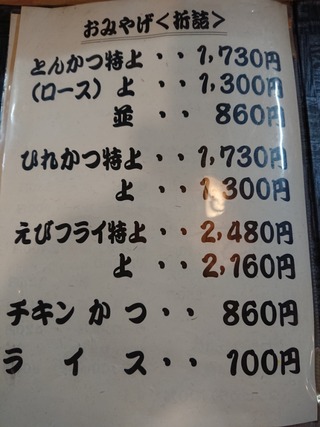 おみやげ<折詰>
とんかつ特上・・1,730円
(ロース)上・・1,300円
並・・860円
ひれかつ特上・・1,730円
上・・1,300円
えびフライ特上・・2,480円
上・・2,160円
チキンかつ・・860円
ライス・・100円